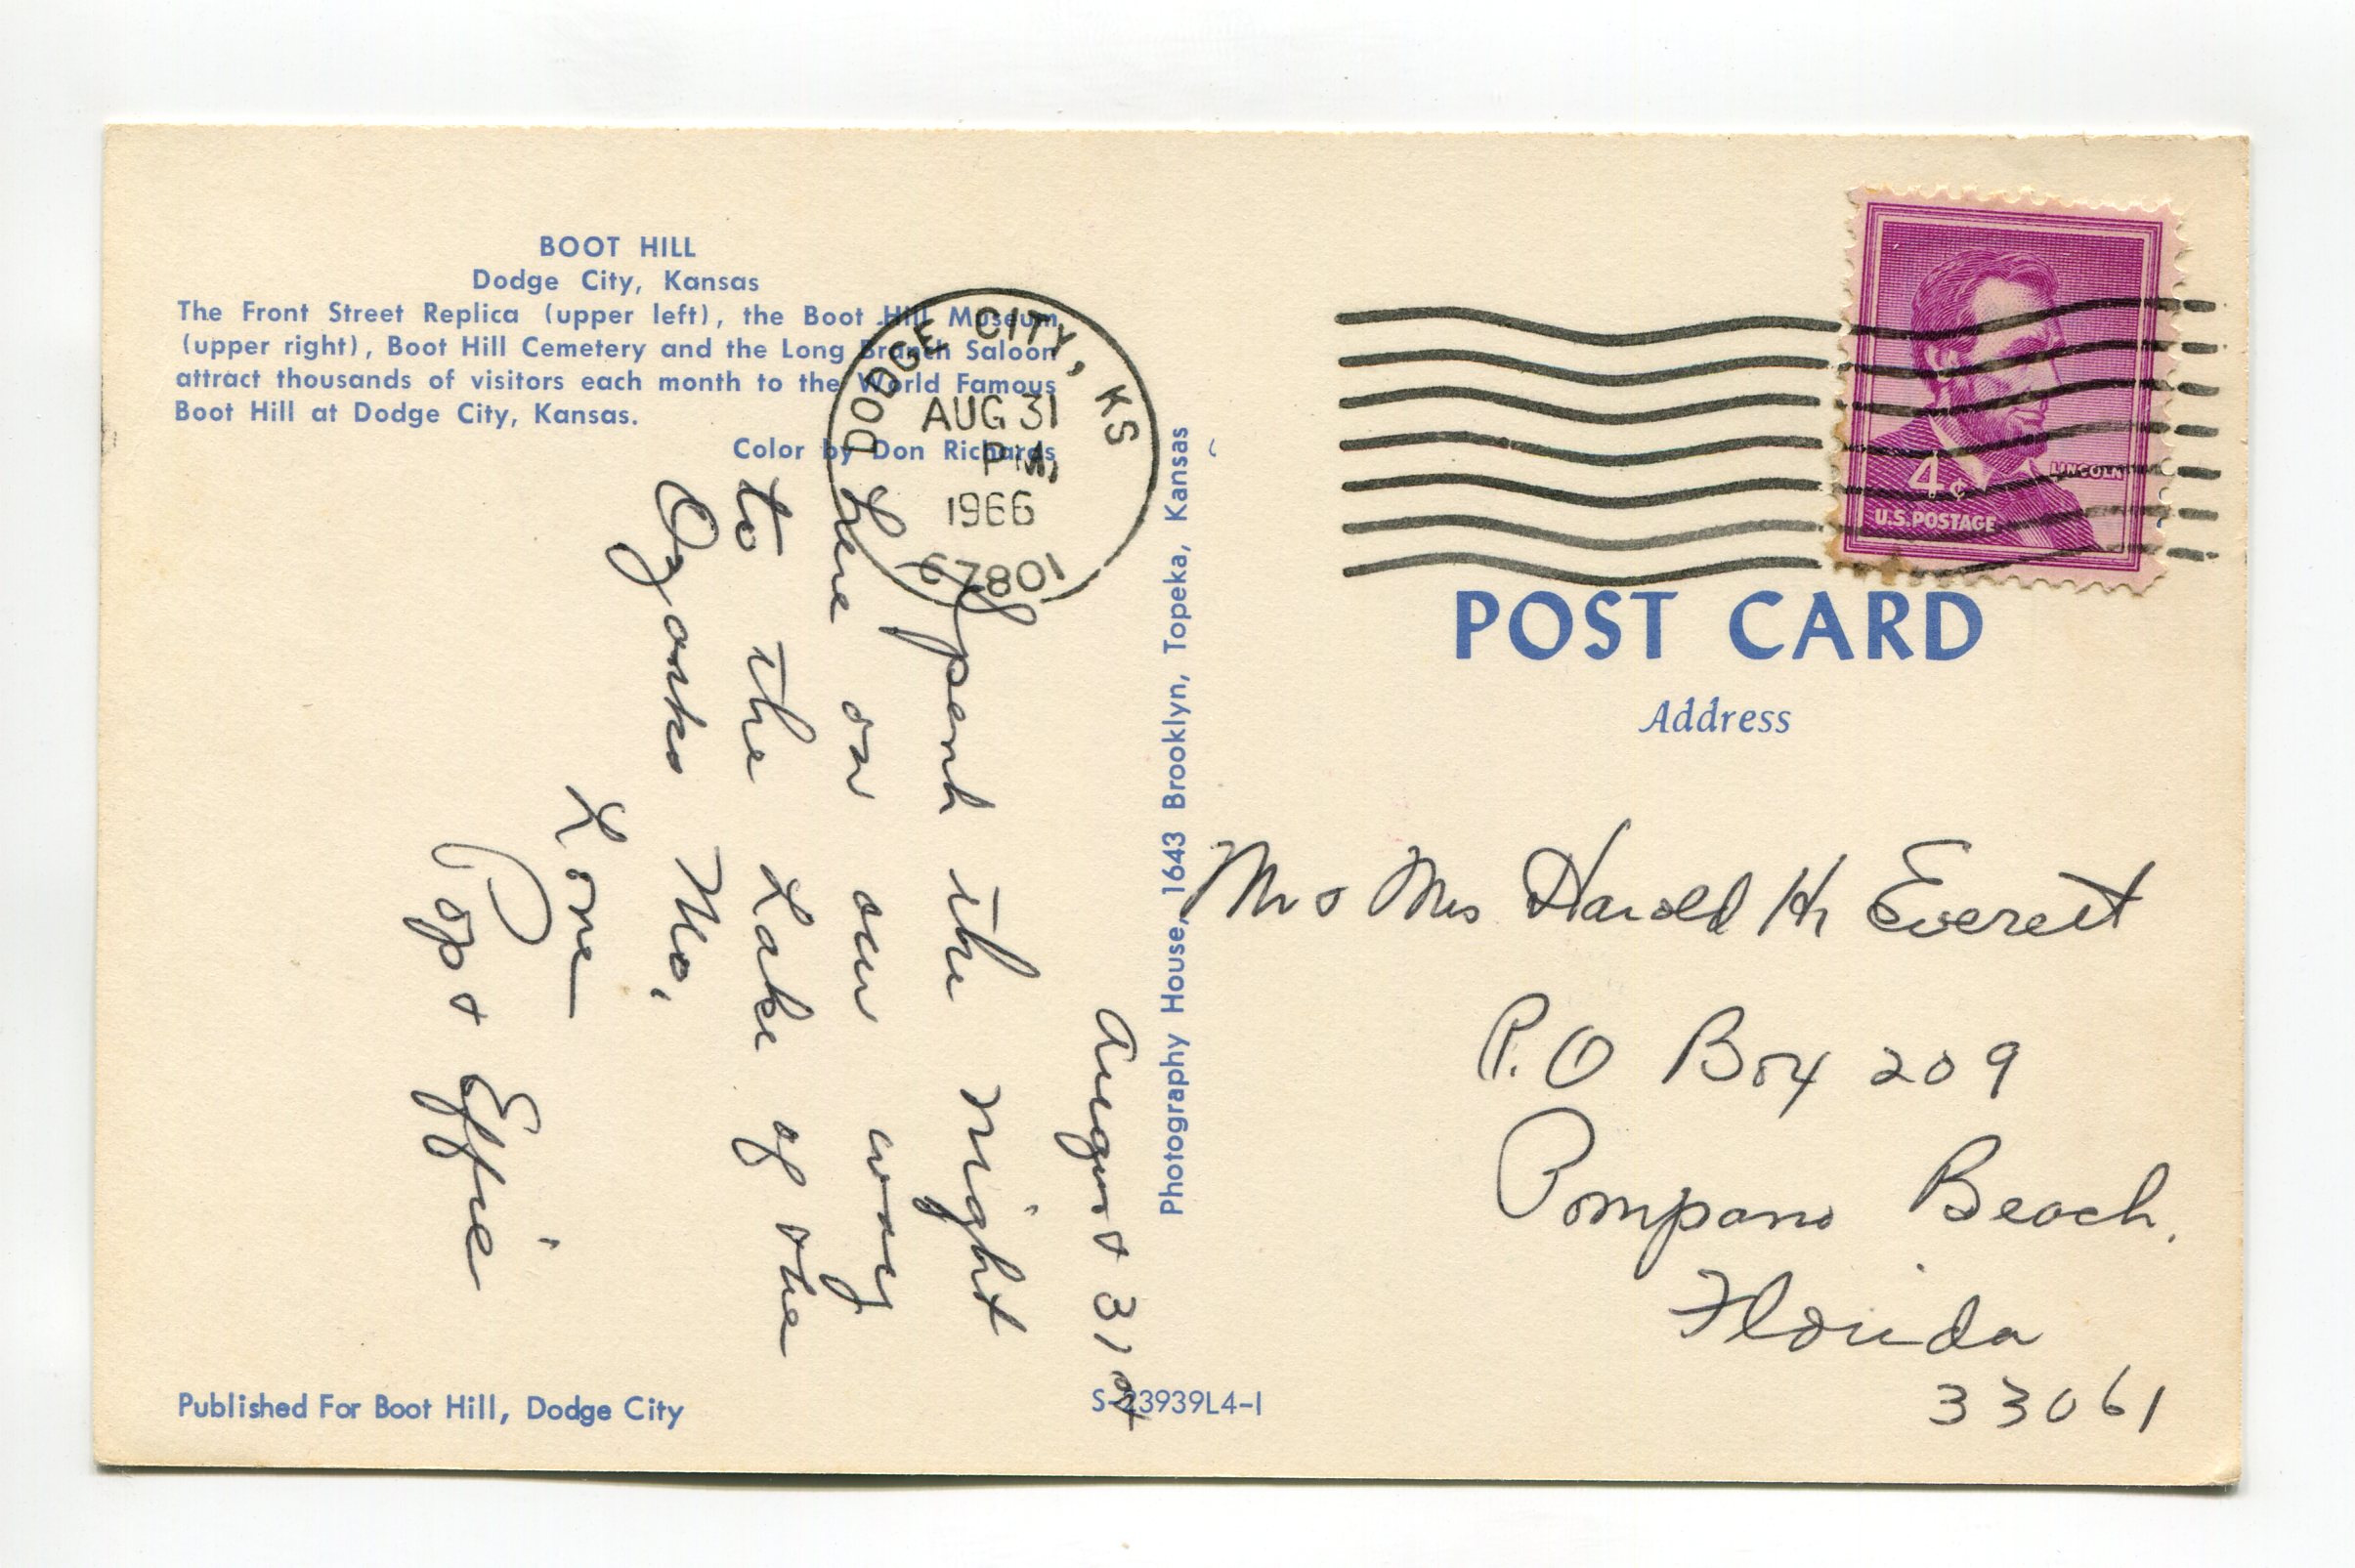 BOOT HILL
Dodge City, Kansas
The Front Street Replica (upper left), the Boot Hill Museum
(upper right), Boot Hill Cemetery and the Long Branch Saloon
attract thousands of visitors each month to the World Famous
Boot Hill at Dodge City, Kansas.
Color by Don Richards
DODGE CITY, KS
AUG 31
PM
1966
67801
August 31st
Spent the night
here on our way
to the Lake of the
Ozarks Mo.
Love
Pop & Effie
Published For Boot Hill, Dodge City
Photography House, 1643 Brooklyn, Topeka, Kansas
S-23939L4-1
4¢
LINCOLN
U.S. POSTAGE
POST CARD
Address
Mr & Mrs Harold H Everett
P.O Box 209
Pompano Beach,
Florida
33061